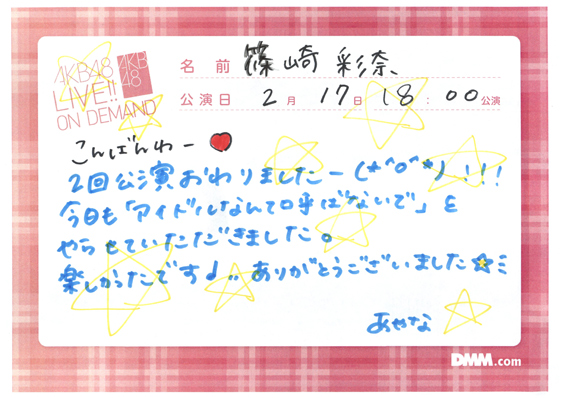 AKB48
LIVE!!
ON DEMAND
AKB
48
名 前 篠崎 彩奈、
公演日 2月 17日 18:00公演
こんばんわー
2回公演おわりましたー(*^o^*)!!!
今日も「アイドルなんて呼ばないで」を
やらせていただきました。
楽しかったです♩.. ありがとうございました☆ミ
あやな
DMM.com